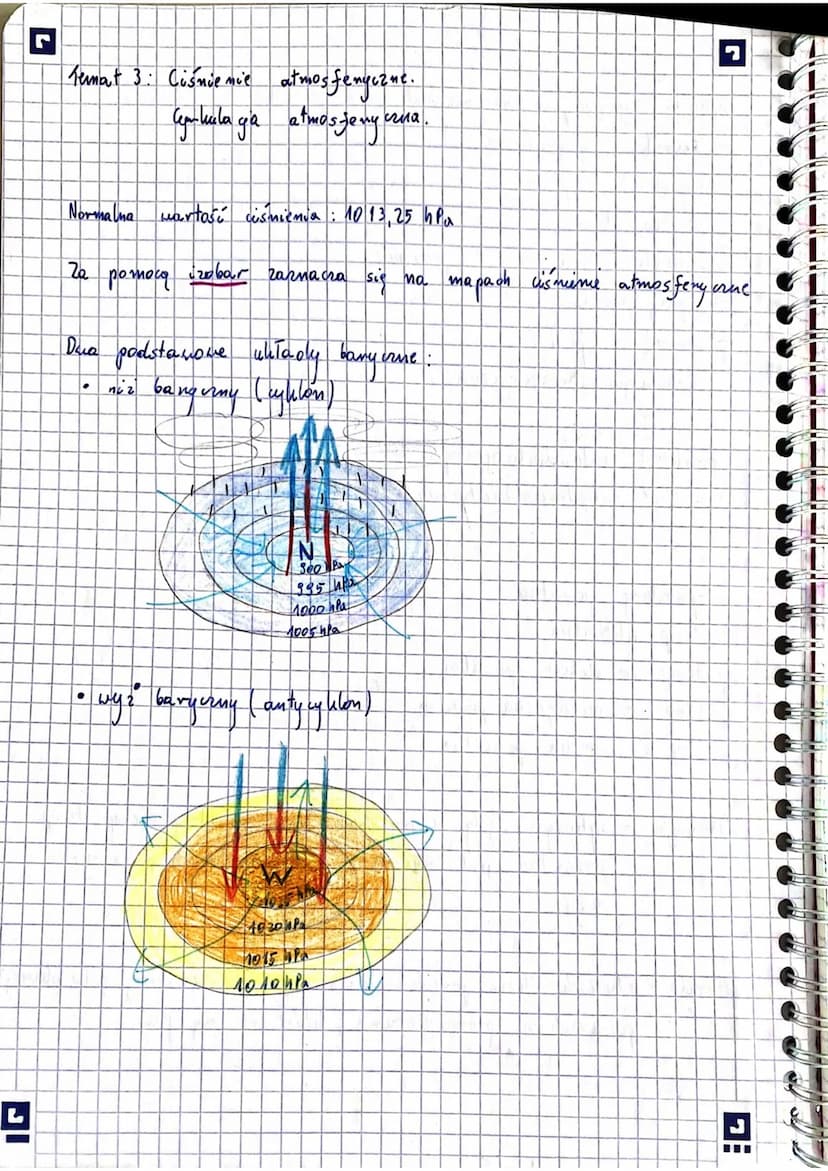 Temat 3: Ciśnienie atmosferyczne.
Cyrkulacja atmosferyczna.
Normalna wartość ciśnienia: 1013,25 hPa
Za pomocą izobar zaznacza się na mapach ciśnienie atmosferyczne
Dwa podstawowe układy baryczne:
• niż baryczny (cyklon)
N
990 hPa
995 hPa
1000 hPa
1005 hPa
• wyż baryczny (antycyklon)
W
1025 hPa
1020 hPa
1015 hPa
1010 hPa